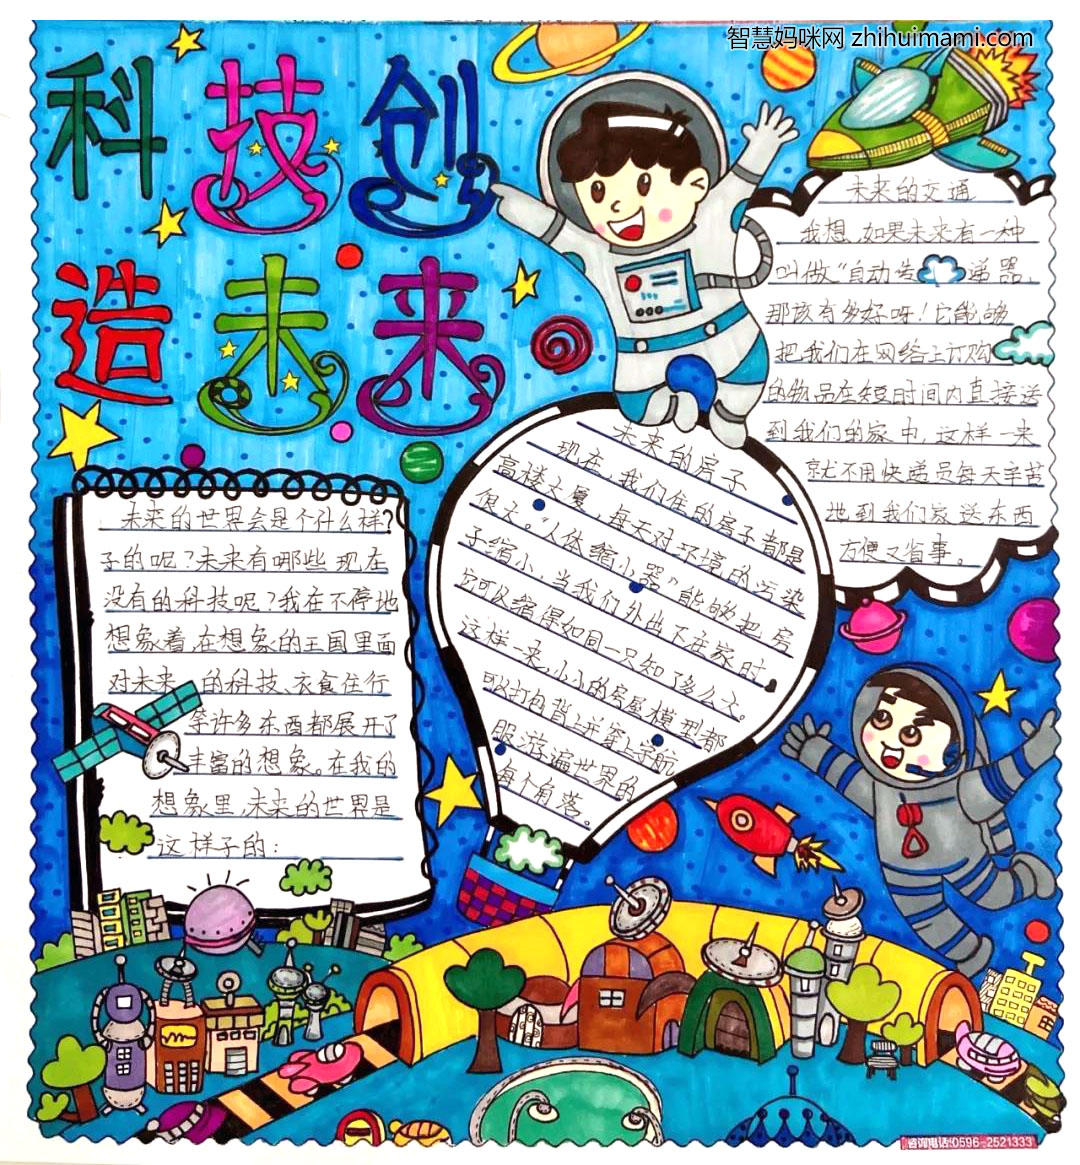 智慧妈咪网 zhihuimami.com
科技创
造未来
未来的交通
我想,如果未来有一种
叫做“自动传 递器,
那该有多好呀!它能够
把我们在网络上订购
的物品在短时间内直接送
到我们的家中,这样一来
就不用快递员每天辛苦
地到我们家送东西
方便又省事。
未来的房子
现在,我们住的房子都是
高楼大厦,每天对环境的污染
很大。“人体缩小器”能够把房
子缩小,当我们外出不在家时,
它可以缩得如同一只知了多么人。
这样一来,小小的房屋模型都
可以打包背上并穿上导航
服游遍世界的
每个角落。
未来的世界会是个什么样?
子的呢?未来有哪些现在
没有的科技呢?我在不停地
想象着,在想象的王国里面
对未来 的科技、衣食住行
等许多东西都展开了
丰富的想象。在我的
想象里,未来的世界是
这样子的:
咨询电话:0596-2521333